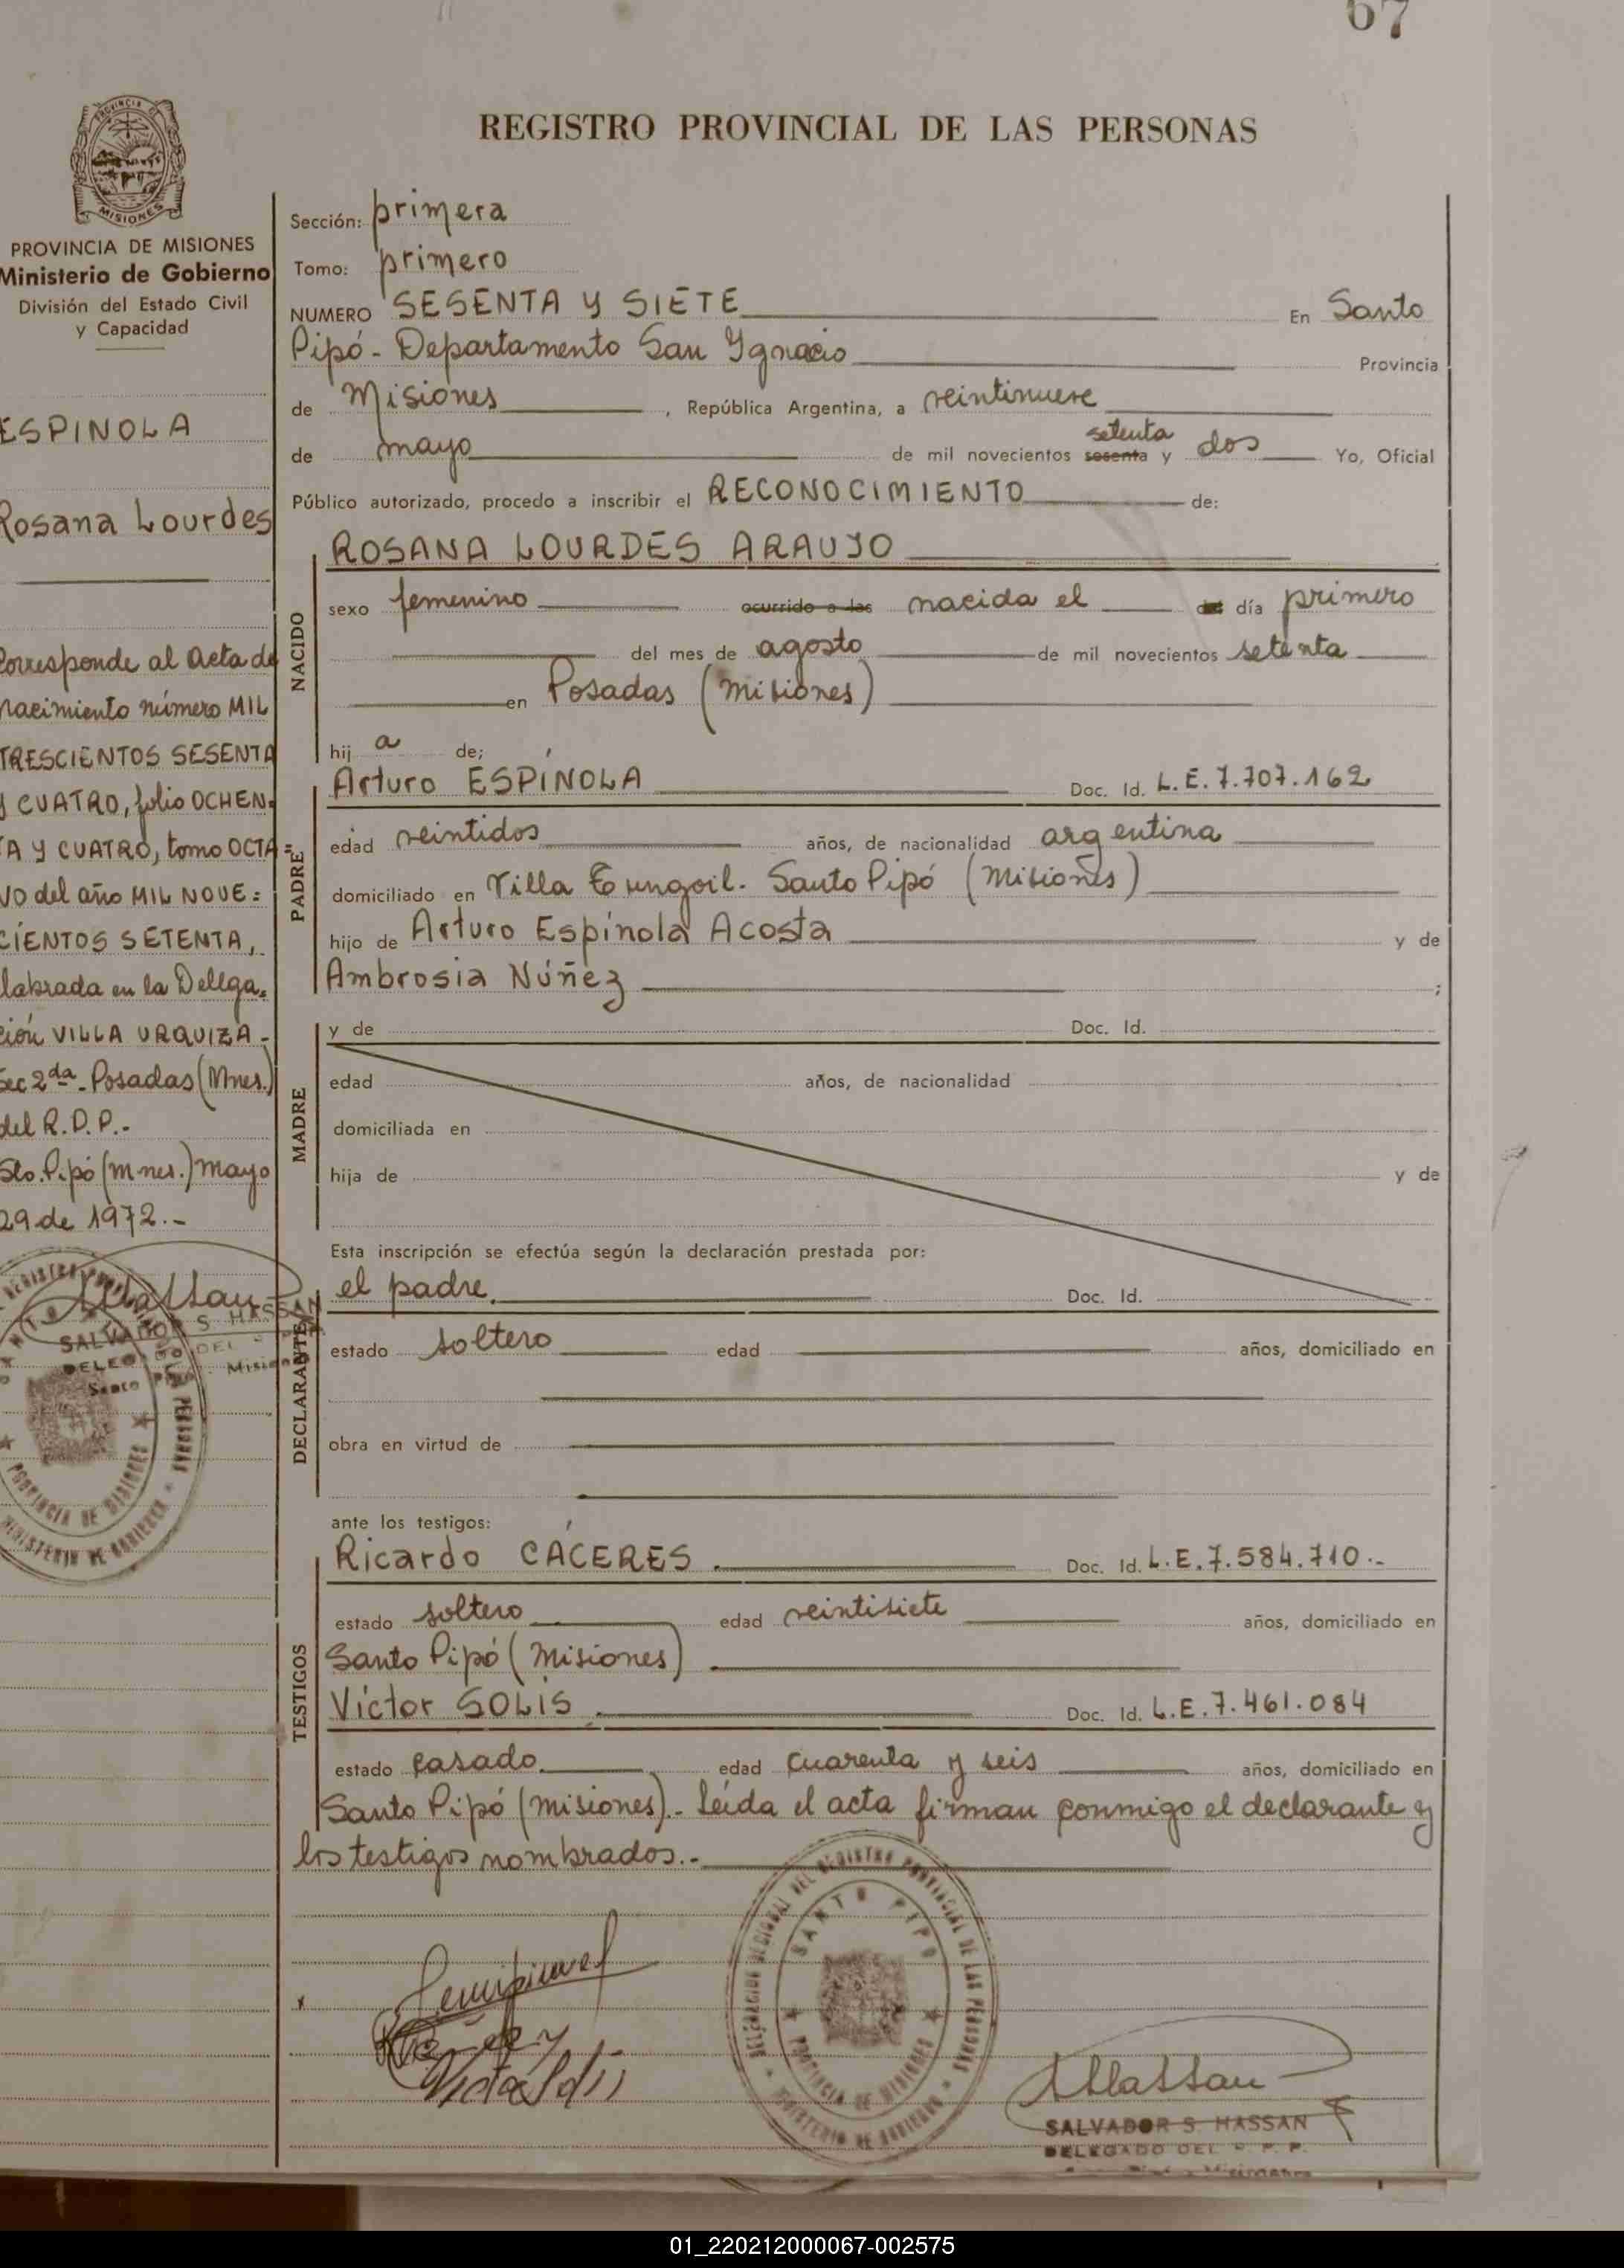 67
REGISTRO PROVINCIAL DE LAS PERSONAS
PROVINCIA DE MISIONES
Ministerio de Gobierno
División del Estado Civil
y Capacidad
ESPINOLA
Rosana Lourdes
Corresponde al Acta de
nacimiento número MIL
TRESCIENTOS SESENTA
Y CUATRO, folio OCHEN=
TA Y CUATRO, tomo OCTA=
VO del año MIL NOVE=
CIENTOS SETENTA,
labrada en la Delega=
ción VILLA URQUIZA -
Sec 2da - Posadas (Mnes.)
del R.D.P.-
Sto. Pipó (Mnes.) mayo
29 de 1972.-
SALVADOR S. HASSAN
DELEGADO DEL
Santo Pipó - Misiones
Sección: primera
Tomo: primero
NUMERO SESENTA Y SIETE En Santo
Pipó - Departamento San Ygnacio Provincia
de Misiones , República Argentina, a veintinueve
de mayo de mil novecientos sesenta setenta y dos Yo, Oficial
Público autorizado, procedo a inscribir el RECONOCIMIENTO de:
NACIDO
ROSANA LOURDES ARAUJO
sexo femenino ocurrido a las nacida el del día primero
del mes de agosto de mil novecientos setenta
en Posadas (Misiones)
hij a de;
PADRE
Arturo ESPÍNOLA Doc. Id. L.E. 7.707.162
edad veintidos años, de nacionalidad argentina
domiciliado en Villa Tungoil. Santo Pipó (Misiones)
hijo de Arturo Espínola Acosta y de
Ambrosia Núñez ;
MADRE
y de Doc. Id.
edad años, de nacionalidad
domiciliada en
hija de y de
Esta inscripción se efectúa según la declaración prestada por:
DECLARANTE
el padre. Doc. Id.
estado soltero edad años, domiciliado en
obra en virtud de
ante los testigos:
TESTIGOS
Ricardo CÁCERES. Doc. Id. L.E. 7.584.710.-
estado soltero edad veintisiete años, domiciliado en
Santo Pipó (Misiones)
Víctor SOLIS. Doc. Id. L.E. 7.461.084
estado casado. edad cuarenta y seis años, domiciliado en
Santo Pipó (Misiones).- Leída el acta firman conmigo el declarante y
los testigos nombrados.-
DELEGACION REGIONAL DEL REGISTRO PROVINCIAL DE LAS PERSONAS
SANTO PIPO
PROVINCIA DE MISIONES
MINISTERIO DE GOBIERNO
SALVADOR S. HASSAN
DELEGADO DEL R. P. P.
01_220212000067-002575